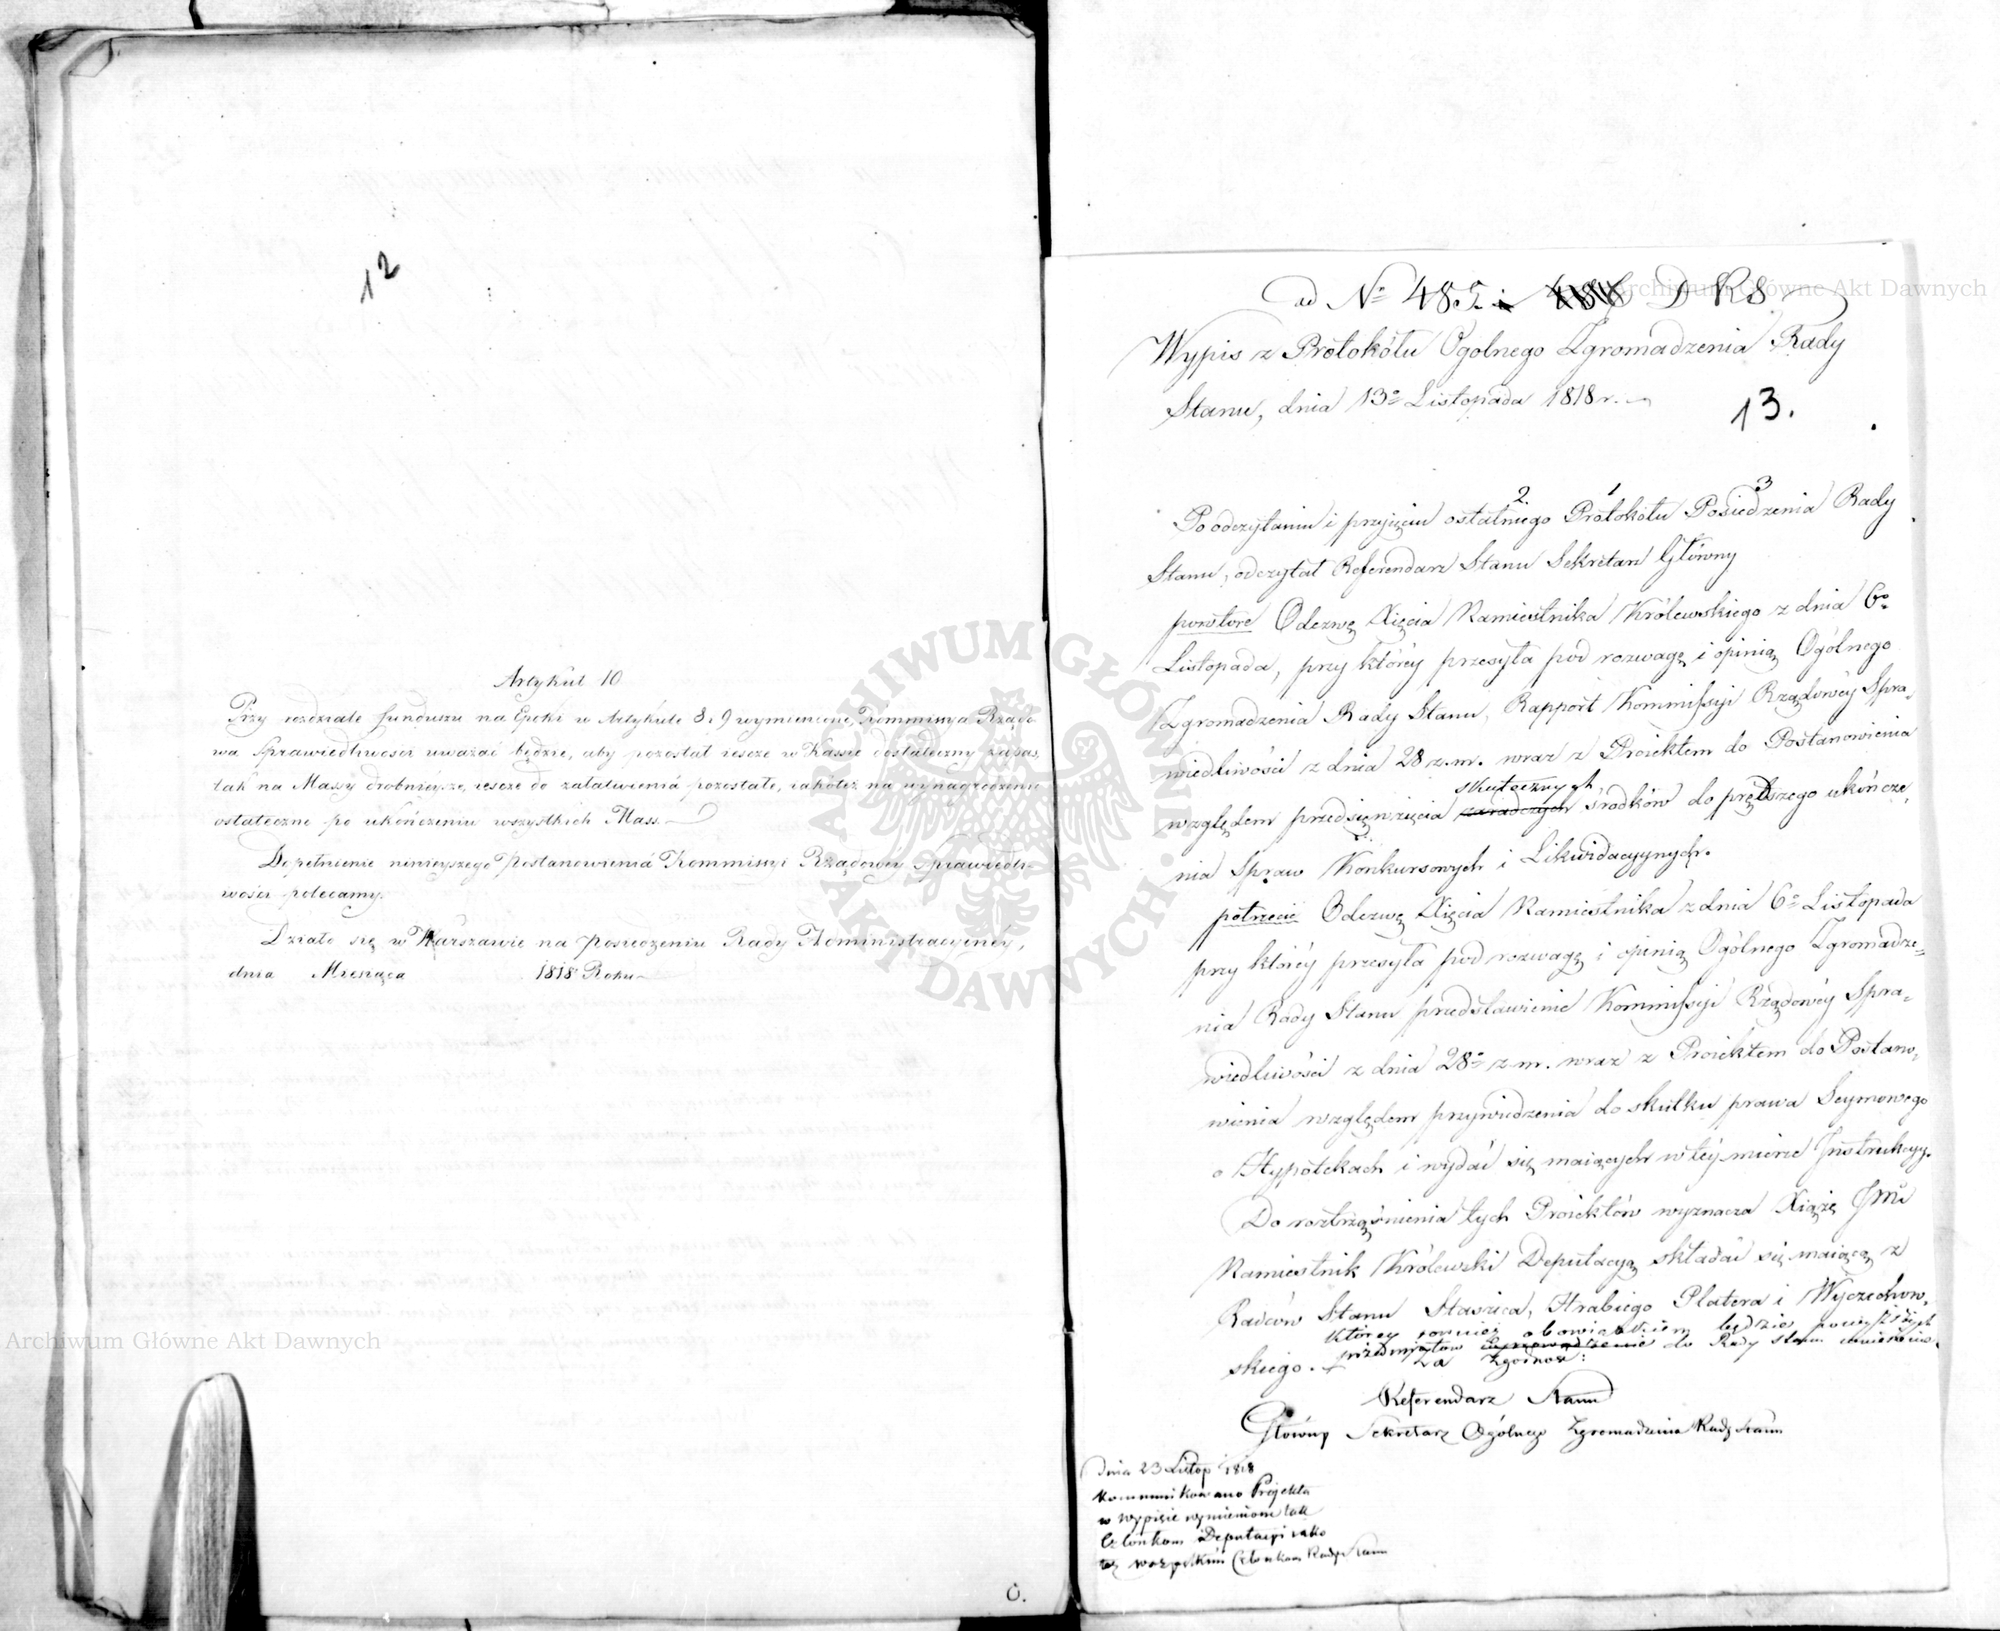 12
Artykuł 10
Przy rozdziale funduszu na Epoki w Artykule 8 i 9 wymienione, Kommissya Rządo-
wa Sprawiedliwości uważać będzie, aby pozostał ieszcze w Kassie dostateczny zapas,
tak na Massy drobnieysze, ieszcze do załatwienia pozostałe, iakoteż na wynagrodzenie
ostateczne po ukończeniu wszystkich Mass.
Dopełnienie ninieyszego Postanowienia Kommissyi Rządowey Sprawiedli-
wości polecamy.
Działo się w Warszawie na posiedzeniu Rady Administracyiney,
dnia Miesiąca 1818 Roku
ad No 485 i 486 D K S
Wypis z Protokółu Ogolnego Zgromadzenia Rady
Stanu, dnia 13o Listopada 1818 r.
13.
2. 1 3
Po odczytaniu i przyięciu ostatniego Protokółu Posiedzenia Rady
Stanu, odczytał Referendarz Stanu Sekretarz Główny
powtóre Odezwę Xięcia Namiestnika Królewskiego z dnia 6o
Listopada, przy którey przesyła pod rozwagę i opinią Ogólnego
Zgromadzenia Rady Stanu, Rapport Kommissyi Rządowéy Spra-
wiedliwości z dnia 28 z.m. wraz z Proiektem do Postanowienia
skutecznych
względem przedsięwzięcia zaradczych środków do prętszego ukończe-
nia Spraw Konkursowych i Likwidacyynych.
potrzecie Odezwę Xięcia Namiestnika z dnia 6o Listopada
przy któréy przesyła pod rozwagę i opinią Ogólnego Zgromadze-
nia Rady Stanu przedstawienie Kommissyi Rządowéy Spra-
wiedliwości z dnia 28o z.m. wraz z Proiektem do Postano-
wienia względem przywiedzenia do skutku prawa Seymowego
o Hypotekach i wydać się maiących w téy mierze Instrukcyy.
Do roztrząśnienia tych Proiektów wyznacza Xiążę Jmć
Namiestnik Królewski Deputacyą składać się maiącą z
Radców Stanu Staszica, Hrabiego Platera i Wyczechow-
którey obowiązkiem będzie powyższych
przedmiotów do Rady Stanu
skiego. Za zgodność:
Referendarz Stanu
Główny Sekretarz Ogólnego Zgromadzenia Rady Stanu
Dnia 23 Listop 1818
Kommunikowano Projekta
w wypisie wymienione tak
Członkom Deputacyi iako
też wszystkim Członkom Rady Stanu
C.
Archiwum Główne Akt Dawnych
Archiwum Główne Akt Dawnych
ARCHIWUM GŁÓWNE
AKT DAWNYCH